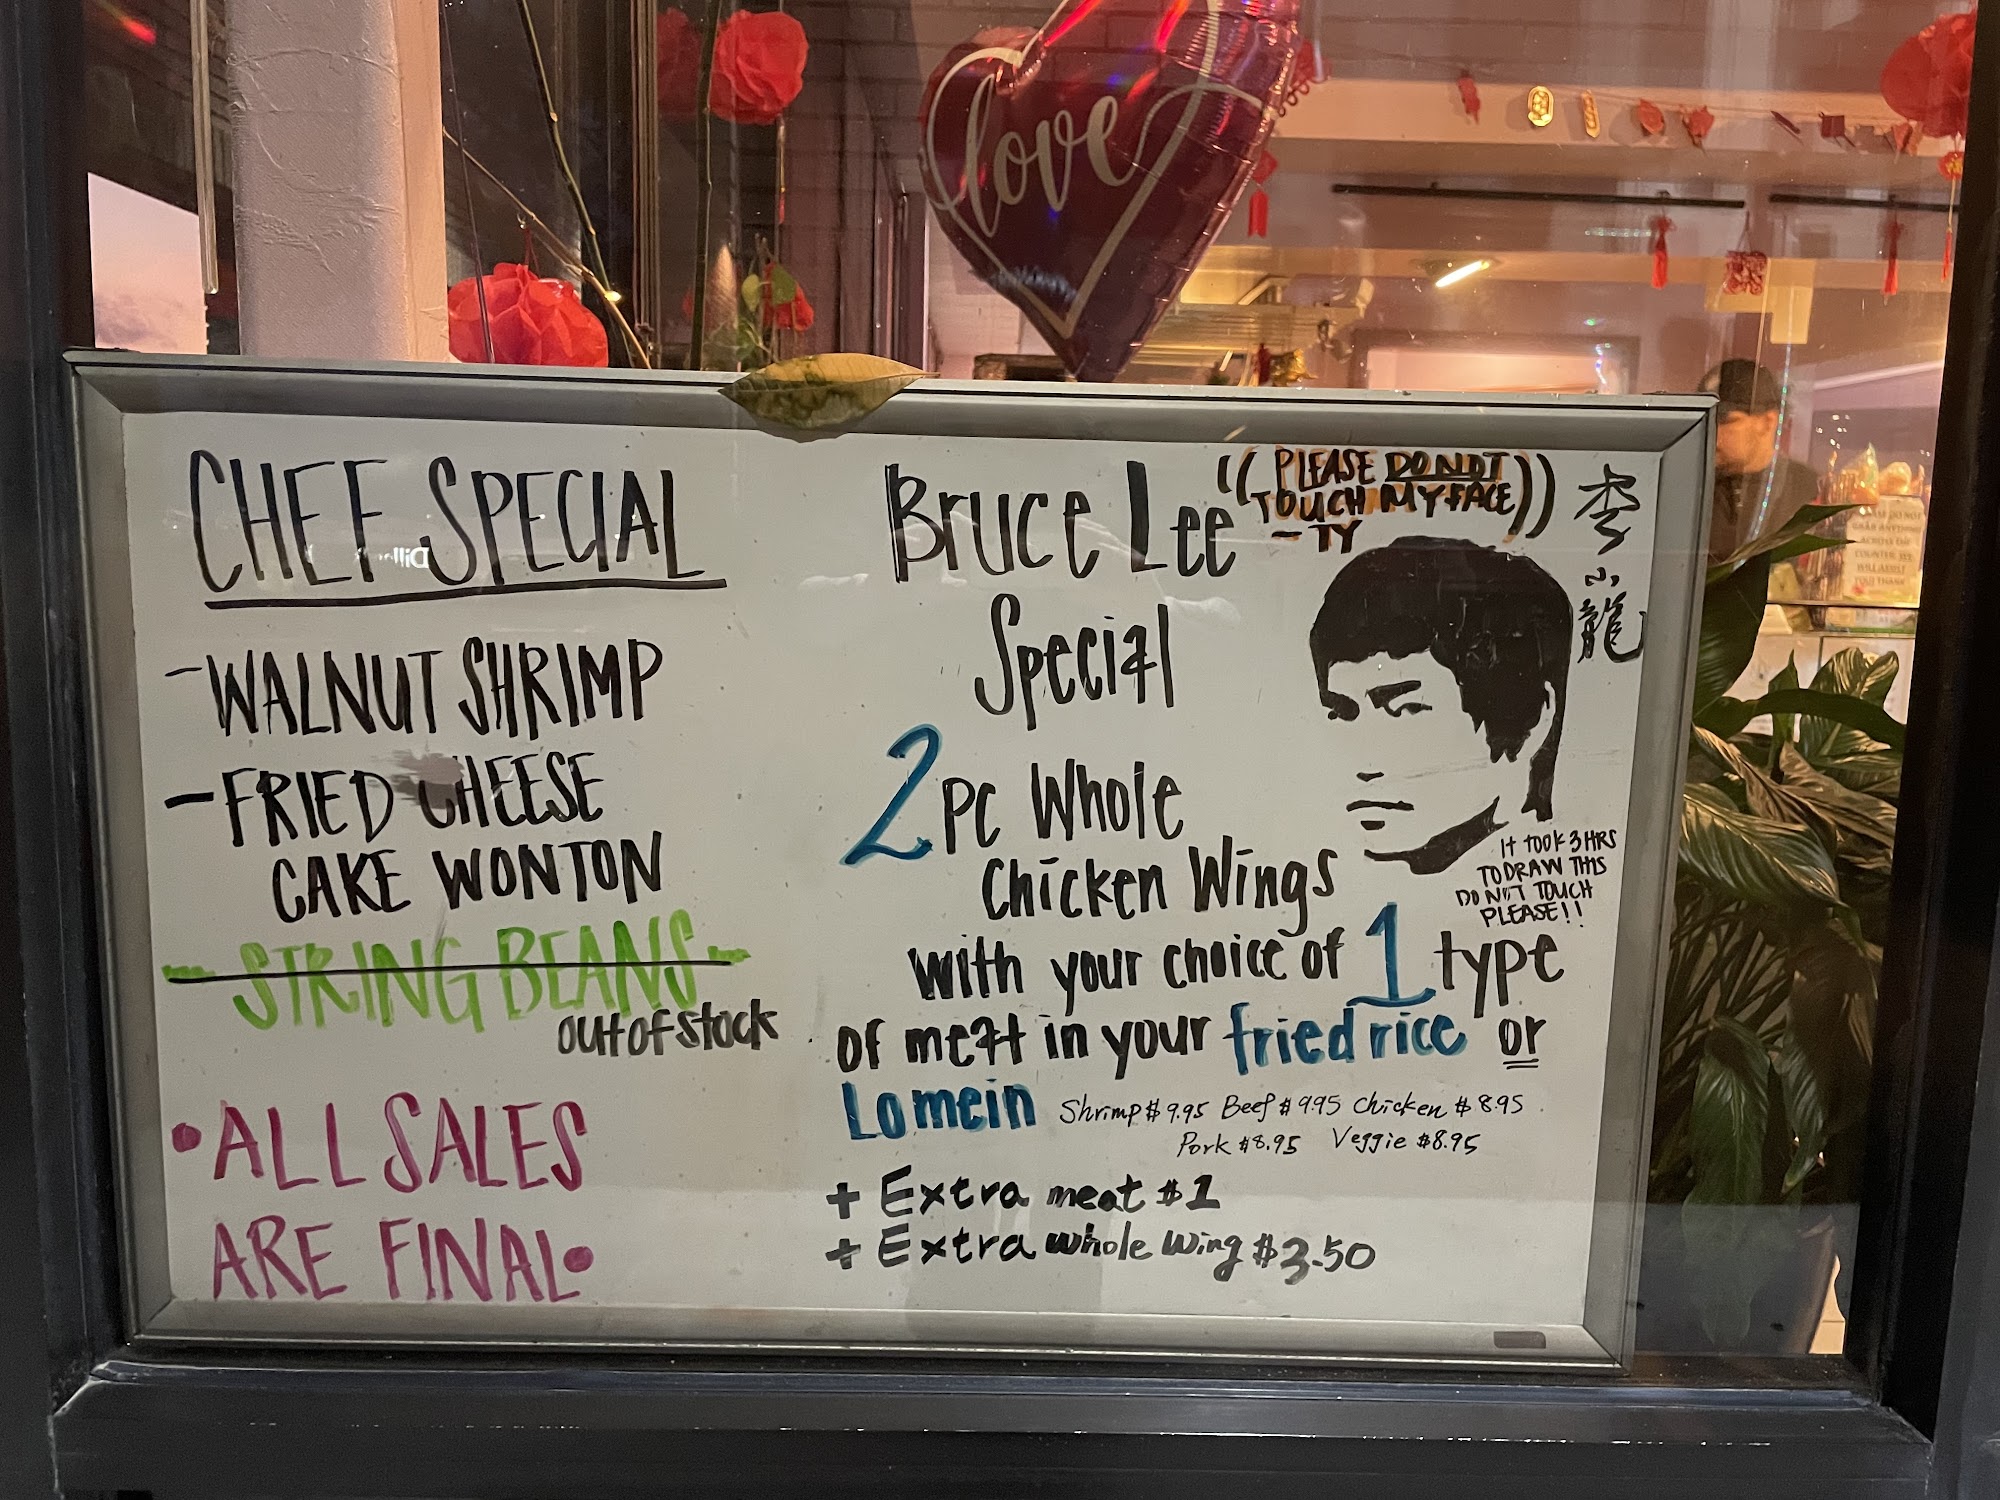 love
CHEF SPECIAL
- WALNUT SHRIMP
- FRIED CHEESE
CAKE WONTON
- STRING BEANS -
out of stock
• ALL SALES
ARE FINAL •
Bruce Lee
Special
2 PC Whole
Chicken Wings
with your choice of 1 type
of meat in your fried rice or
Lo mein
Shrimp $ 9.95 Beef $ 9.95 Chicken $ 8.95
Pork $8.95 Veggie $8.95
+ Extra meat $1
+ Extra whole wing $3.50
((PLEASE DO NOT
TOUCH MY FACE))
- TY
李小龍
IT TOOK 3 HRS
TO DRAW THIS
DO N'T TOUCH
PLEASE!!